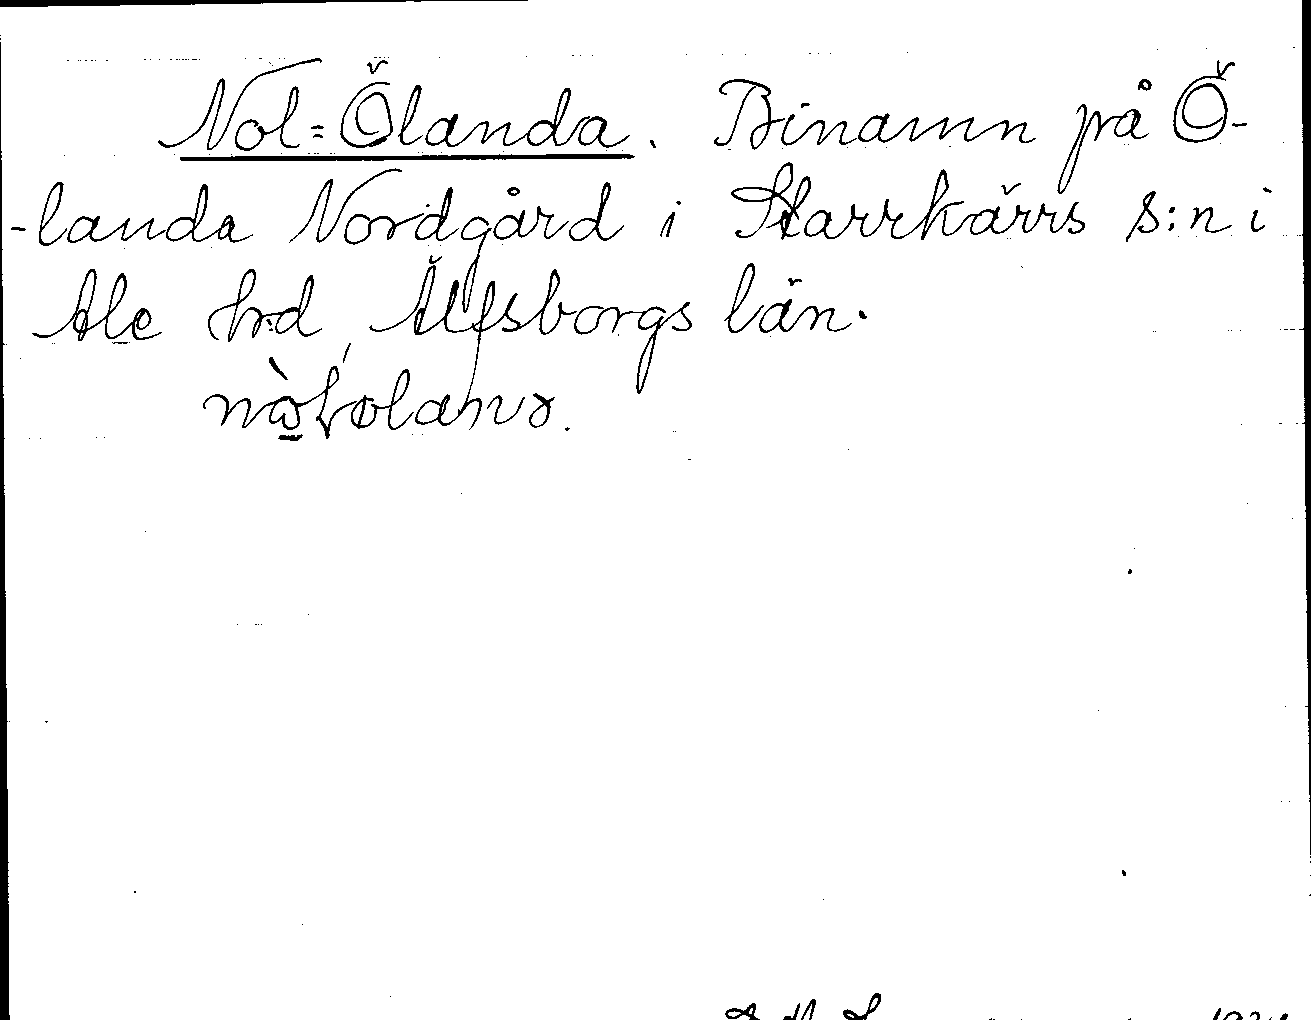 Nol=Ölanda. Binamn på Ö-
-landa Nordgård i Starrkärrs s:n i
Ale hd, Älfsborgs län.